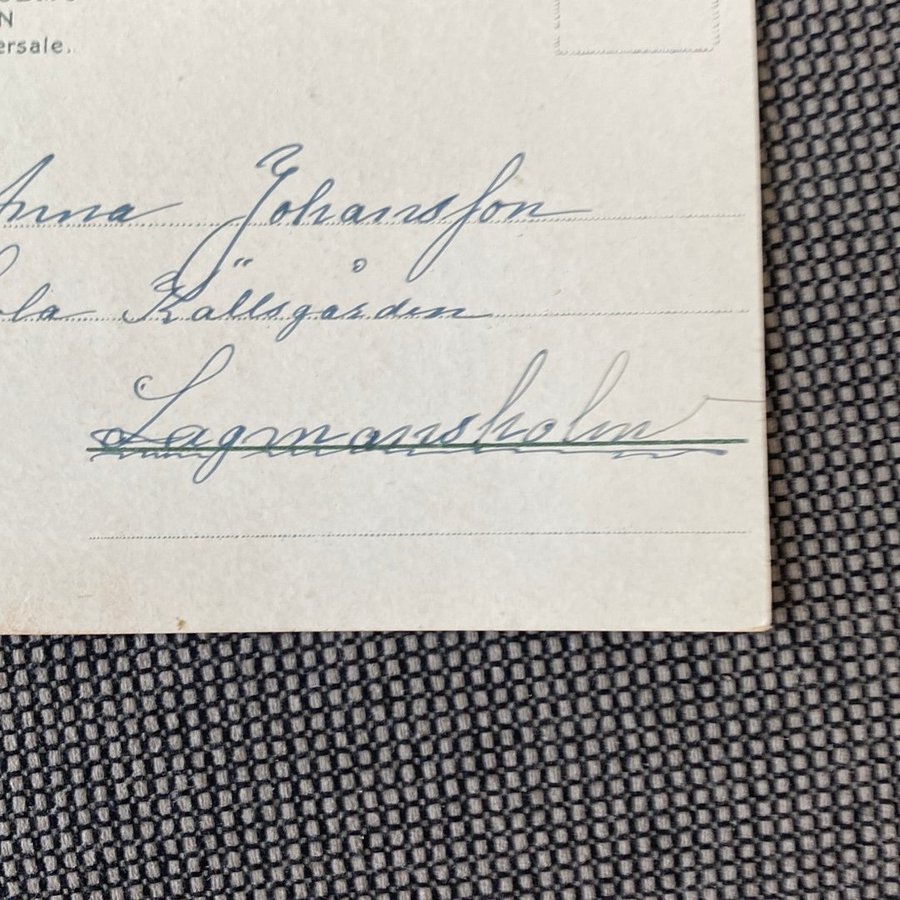 N
ersale.
Anna Johansson
ola Källsgården
Lagmansholm